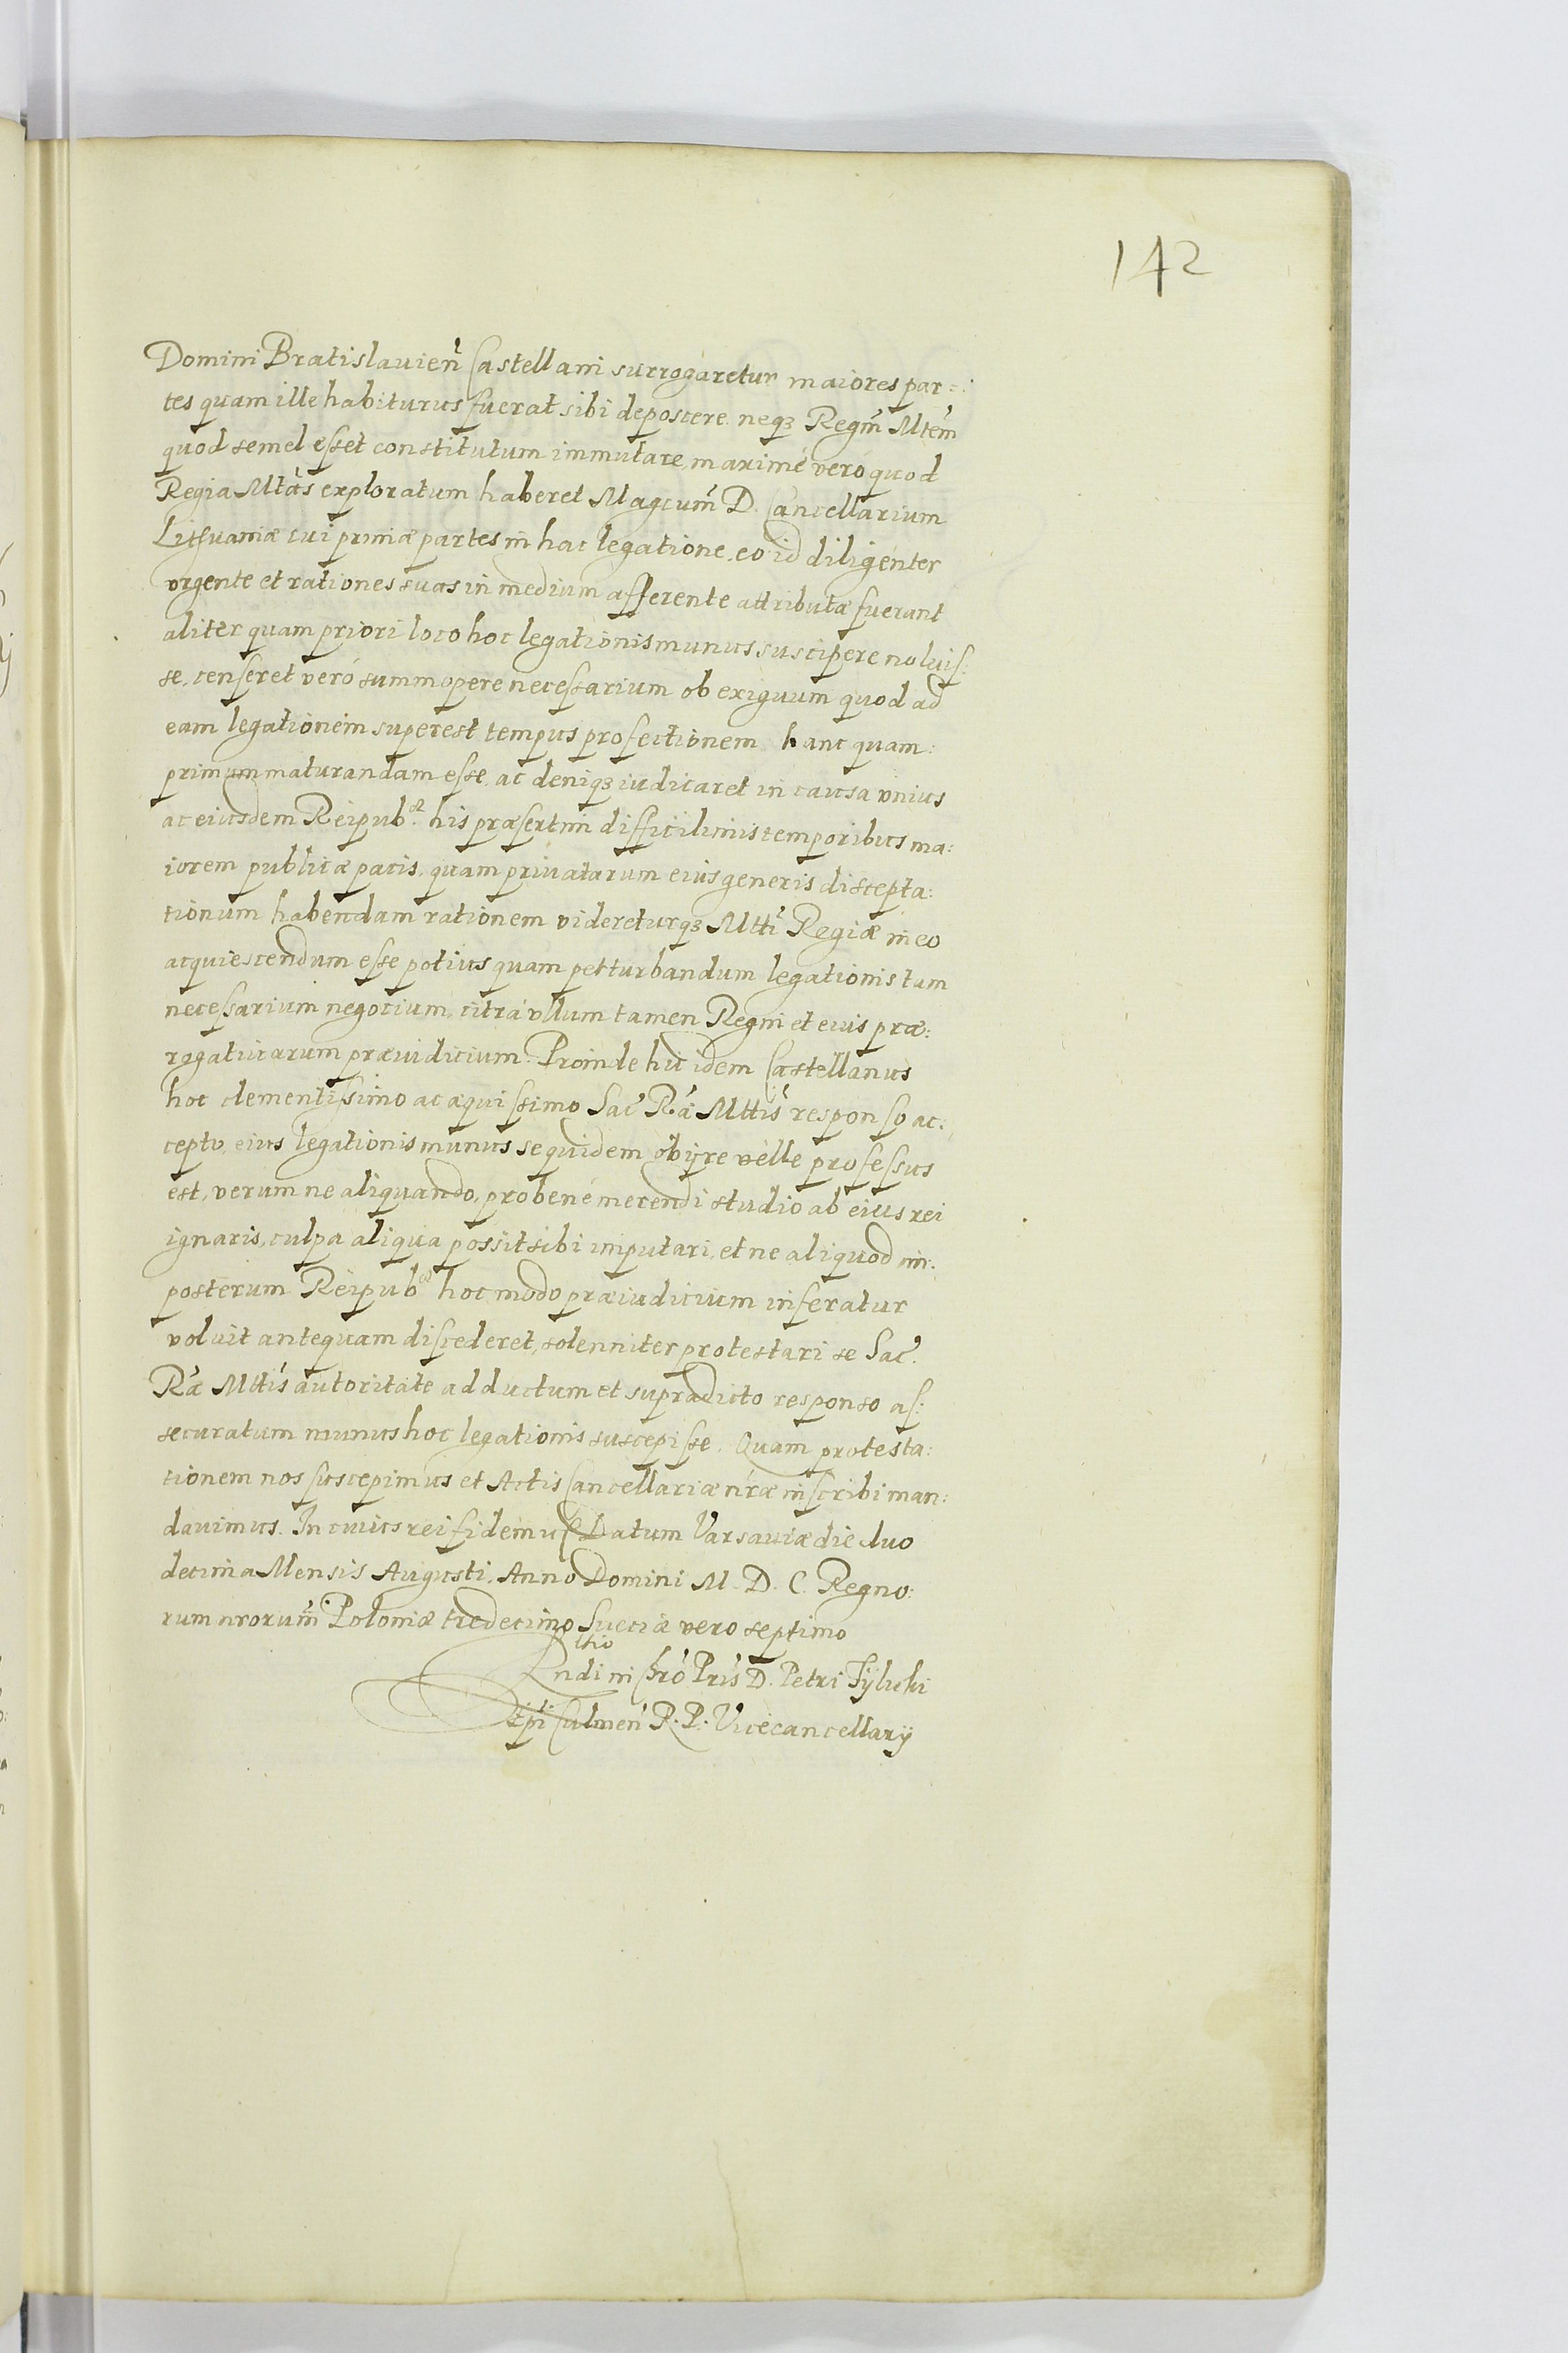 142
Domini Bratislavien̄ Castellani surrogaretur maiores par=
tes quam ille habiturus fuerat sibi deposcere neqꝫ Regm̄ Mtem̄
quod semel esset constitutum immutare, maximé veró quod
Regia Mtās exploratum haberet Magcum̄ D. Cancellarium
Lithuaniæ cui primæ partes in hac legatione, eo id diligenter
vrgente et rationes suas in medium afferente attributæ fuerant
aliter quam priori loco hoc legationis munus suscipere noluis:
se, censeret veró summopere necessarium ob exiguum quod ad
eam legationem superest tempus profectionem hanc quam:
primum maturandam esse, ac deniqꝫ iudicaret in causa vnius
ac eiusdem Reipub: his præsertim difficilimis temporibus ma:
iorem publicæ pacis, quam privatarum eius generis discepta:
tionum habendam rationem videreturqꝫ Mtti Regiæ in eo
acquiescendum esse potius quam petturbandum legationis tam
necessarium negocium, citrá vllum tamen Regni et eius præ:
rogativarum præiudicium. Proinde hic idem Castellanus
hoc clementissimo ac æquissimo Sac̄ R.æ Mttis̄ responso ac:
cepto, eius legationis munus se quidem obijre velle professus
est, verum ne aliquando, pro bené merendi studio ab eius rei
ignaris, culpa aliqua possit sibi imputari, et ne aliquod in:
posterum Reipub hoc modo præiudicium inferatur
voluit antequam discederet, solenniter protestari se Sac̄.
R̄æ Mttis̄ autoritate adductum et supradicto responso as:
securatum munus hoc legationis suscepisse. Quam protesta:
tionem nos suscepimus et Actis Cancellariæ nr̄æ inscribi man:
davimus. In cuius rei fidem Datum Varsaviæ die duo
decima Mensis Augusti. Anno Domini M. D. C. Regno:
rum nrorum̄ Poloniæ tredecimo Sueciæ vero septimo
Rltio
Rndi in Chrō Pr̄is D. Petri Tÿlicki
Epī Culmen̄ R. P. Vicecancellarij